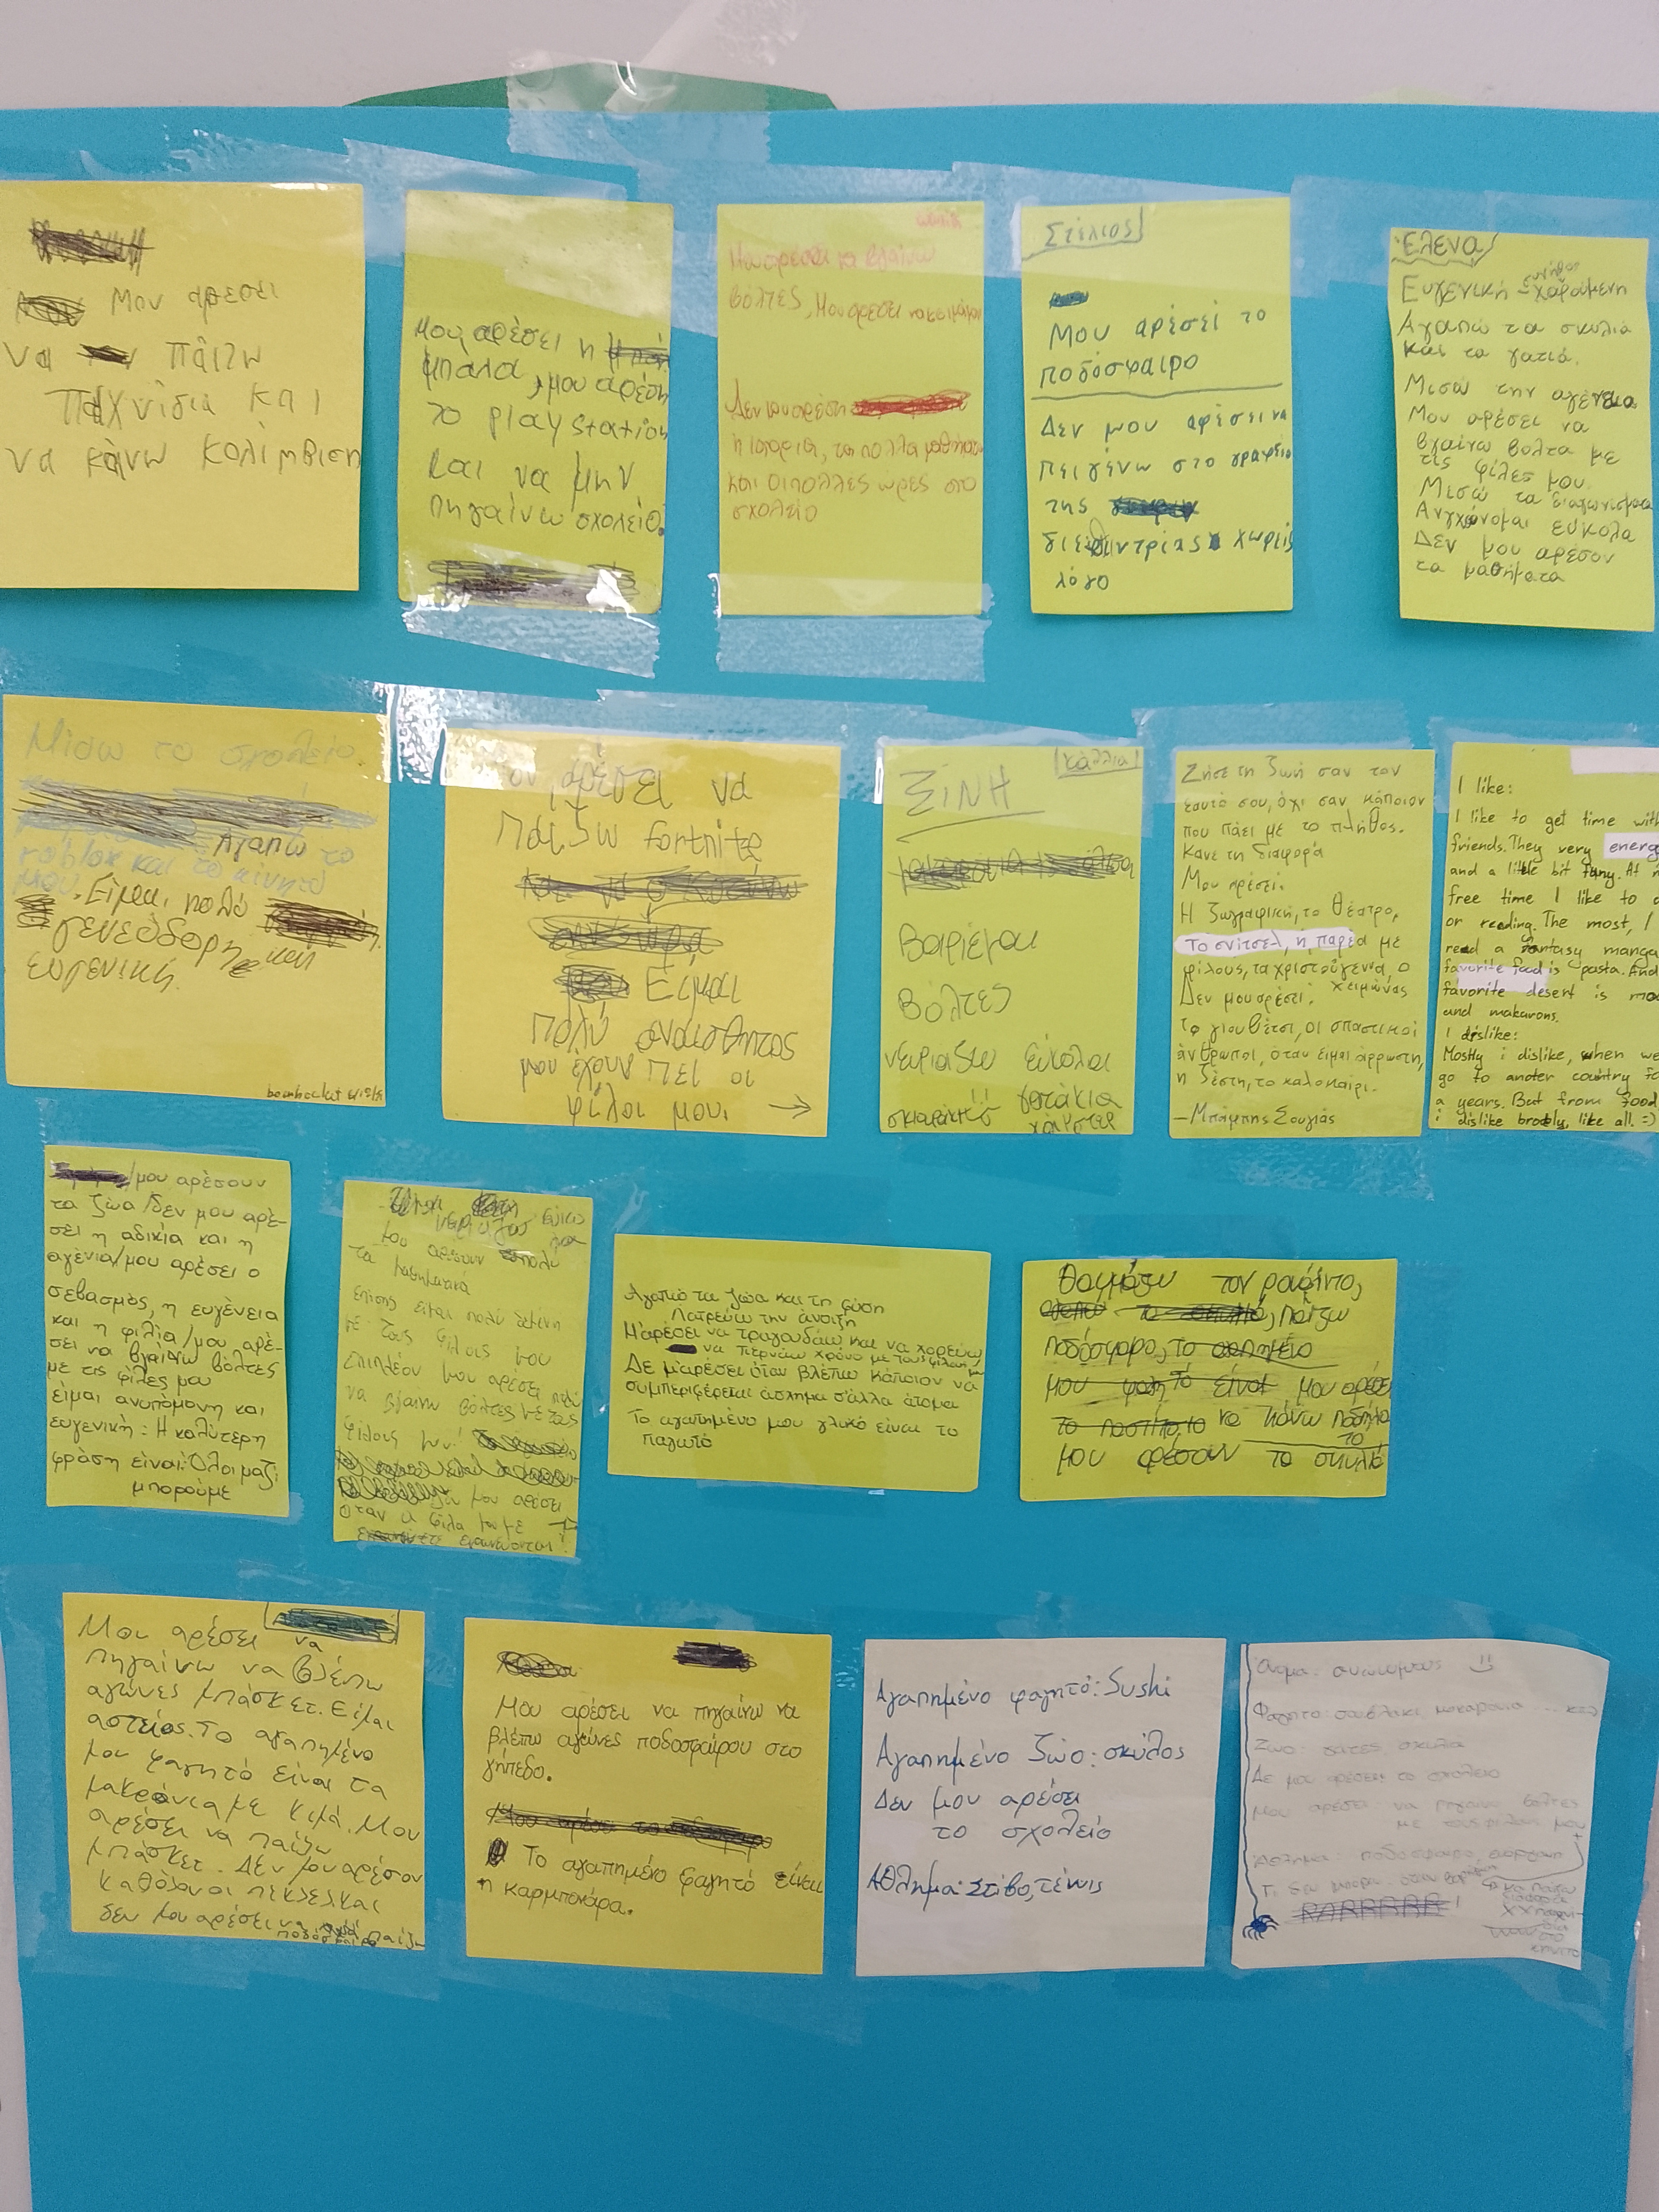 Μου αρεσει
να παιζω
παιχνίδια και
να κάνω κολίμβιση
Μου αρέσει η
μπάλα, μου αρέση
το playstation
και να μην
πηγαίνω σχολείο.
Μου αρέσει να βγαίνω
βόλτες, Μου αρέσει να κοιμάμαι
Δεν μου αρέση
η Ιστορία, τα πολλά μαθήματα
και οι πολλές ώρες στο
σχολείο
Στέλιος
Μου αρέσει το
ποδόσφαιρο
Δεν μου αρέσει να
πειγένω στο γραφείο
της
διεθιντρίας χωρείς
λόγο
Έλενα
Ευγενική - συνήθως χαρούμενη
Αγαπώ τα σκυλιά
και τα γατιά.
Μισώ την αγένεια
Μου αρέσει να
βγαίνω βόλτα με
τις φίλες μου.
Μισώ τα διαγωνίσματα
Ανγχόνομαι εύκολα
Δεν μου αρέσον
τα μαθήματα
Μισώ το σχολείο.
Αγαπώ το
roblox και το κινητό
μου. Είμαι πολύ
γενεόδορη και
ευγενική.
Μου αρέσει να
παίζω fortnite
Είμαι
πολύ αναίσθητος
μου έχουν πει οι
φίλοι μου. →
Κάλλια
ΞΙΝΗ
Βαριέμαι
Βόλτες
νευριάζω εύκολα
γατάκια
χάμστερ
Ζήσε τη ζωή σαν τον
εαυτό σου, όχι σαν κάποιον
που πάει με το πλήθος.
Κάνε τη διαφορά
Μου αρέσει:
Η ζωγραφική, το θέατρο,
το σνίτσελ, η παρέα με
φίλους, τα χριστούγεννα, ο
χειμώνας
Δεν μου αρέσει:
το γιουβέτσι, οι σπαστικοί
άνθρωποι, όταν είμαι άρρωστη,
η ζέστη, το καλοκαίρι.
—Μπάμπης Σουγιάς
I like:
I like to get time with
friends. They very energ
and a little bit funy. At m
free time I like to d
or reading. The most, I
read a fantasy manga
favorite food is pasta. And
favorite desert is mo
and makarons.
I dislike:
Mostly i dislike, when we
go to anoter country fo
a years. But from food
i dislike brocoly, like all. =)
/μου αρέσουν
τα ζώα/δεν μου αρέ-
σει η αδικία και η
αγένια/μου αρέσει ο
σεβασμός, η ευγένεια
και η φιλία/μου αρέ-
σει να βγαίνω βόλτες
με τις φίλες μου
είμαι ανυπόμονη και
ευγενική: Η καλύτερη
φράση είναι: Όλοι μαζί
μπορούμε
μου αρέσουν πολύ
τα μαθηματικά
επίσης είμαι πολύ δεμένη
με τους φίλους μου
επιπλέον μου αρέσει πολύ
να βγαίνω βόλτες με τους
φίλους μου!
δεν μου αρέσει
όταν
Αγαπώ τα ζώα και τη φύση
Λατρεύω την άνοιξη
Μ'αρέσει να τραγουδάω και να χορεύω,
να περνάω χρόνο με τους φίλους μου
Δε μ'αρέσει όταν βλέπω κάποιον να
συμπεριφέρεται άσχημα σ'άλλα άτομα
Το αγαπημένο μου γλυκό είναι το
παγωτό
Θαυμάζω τον ραφίνια,
παίζω
ποδόσφαρο,
μου αρέσει
να κάνω ποδήλατο
μου αρέσουν τα σκυλιά
Μου αρέσει να
πηγαίνω να βλέπω
αγώνες μπάσκετ. Είμαι
αστείος. Το αγαπημένο
μου φαγητό είναι τα
μακρόνια με κιμά. Μου
αρέσει να παίζω
μπάσκετ. Δεν μου αρέσουν
καθόλου οι
δεν μου αρέσει να παίζω
Μου αρέσει να πηγαίνω να
βλέπω αγώνες ποδοσφαίρου στο
γήπεδο.
Το αγαπημένο φαγητό είναι
η καρμπονάρα.
Αγαπημένο φαγητό: Sushi
Αγαπημένο ζώο: σκύλος
Δεν μου αρέσει
το σχολείο
Άθλημα: Στίβο, τένις
Όνομα: ανώνυμος
Φαγητό: σουβλάκι, μακαρόνια ... κλπ
Ζώο: γάτες σκυλιά
Δε μου αρέσει το σχολείο
Μου αρέσει να πηγαίνω βόλτες
με τους φίλους μου